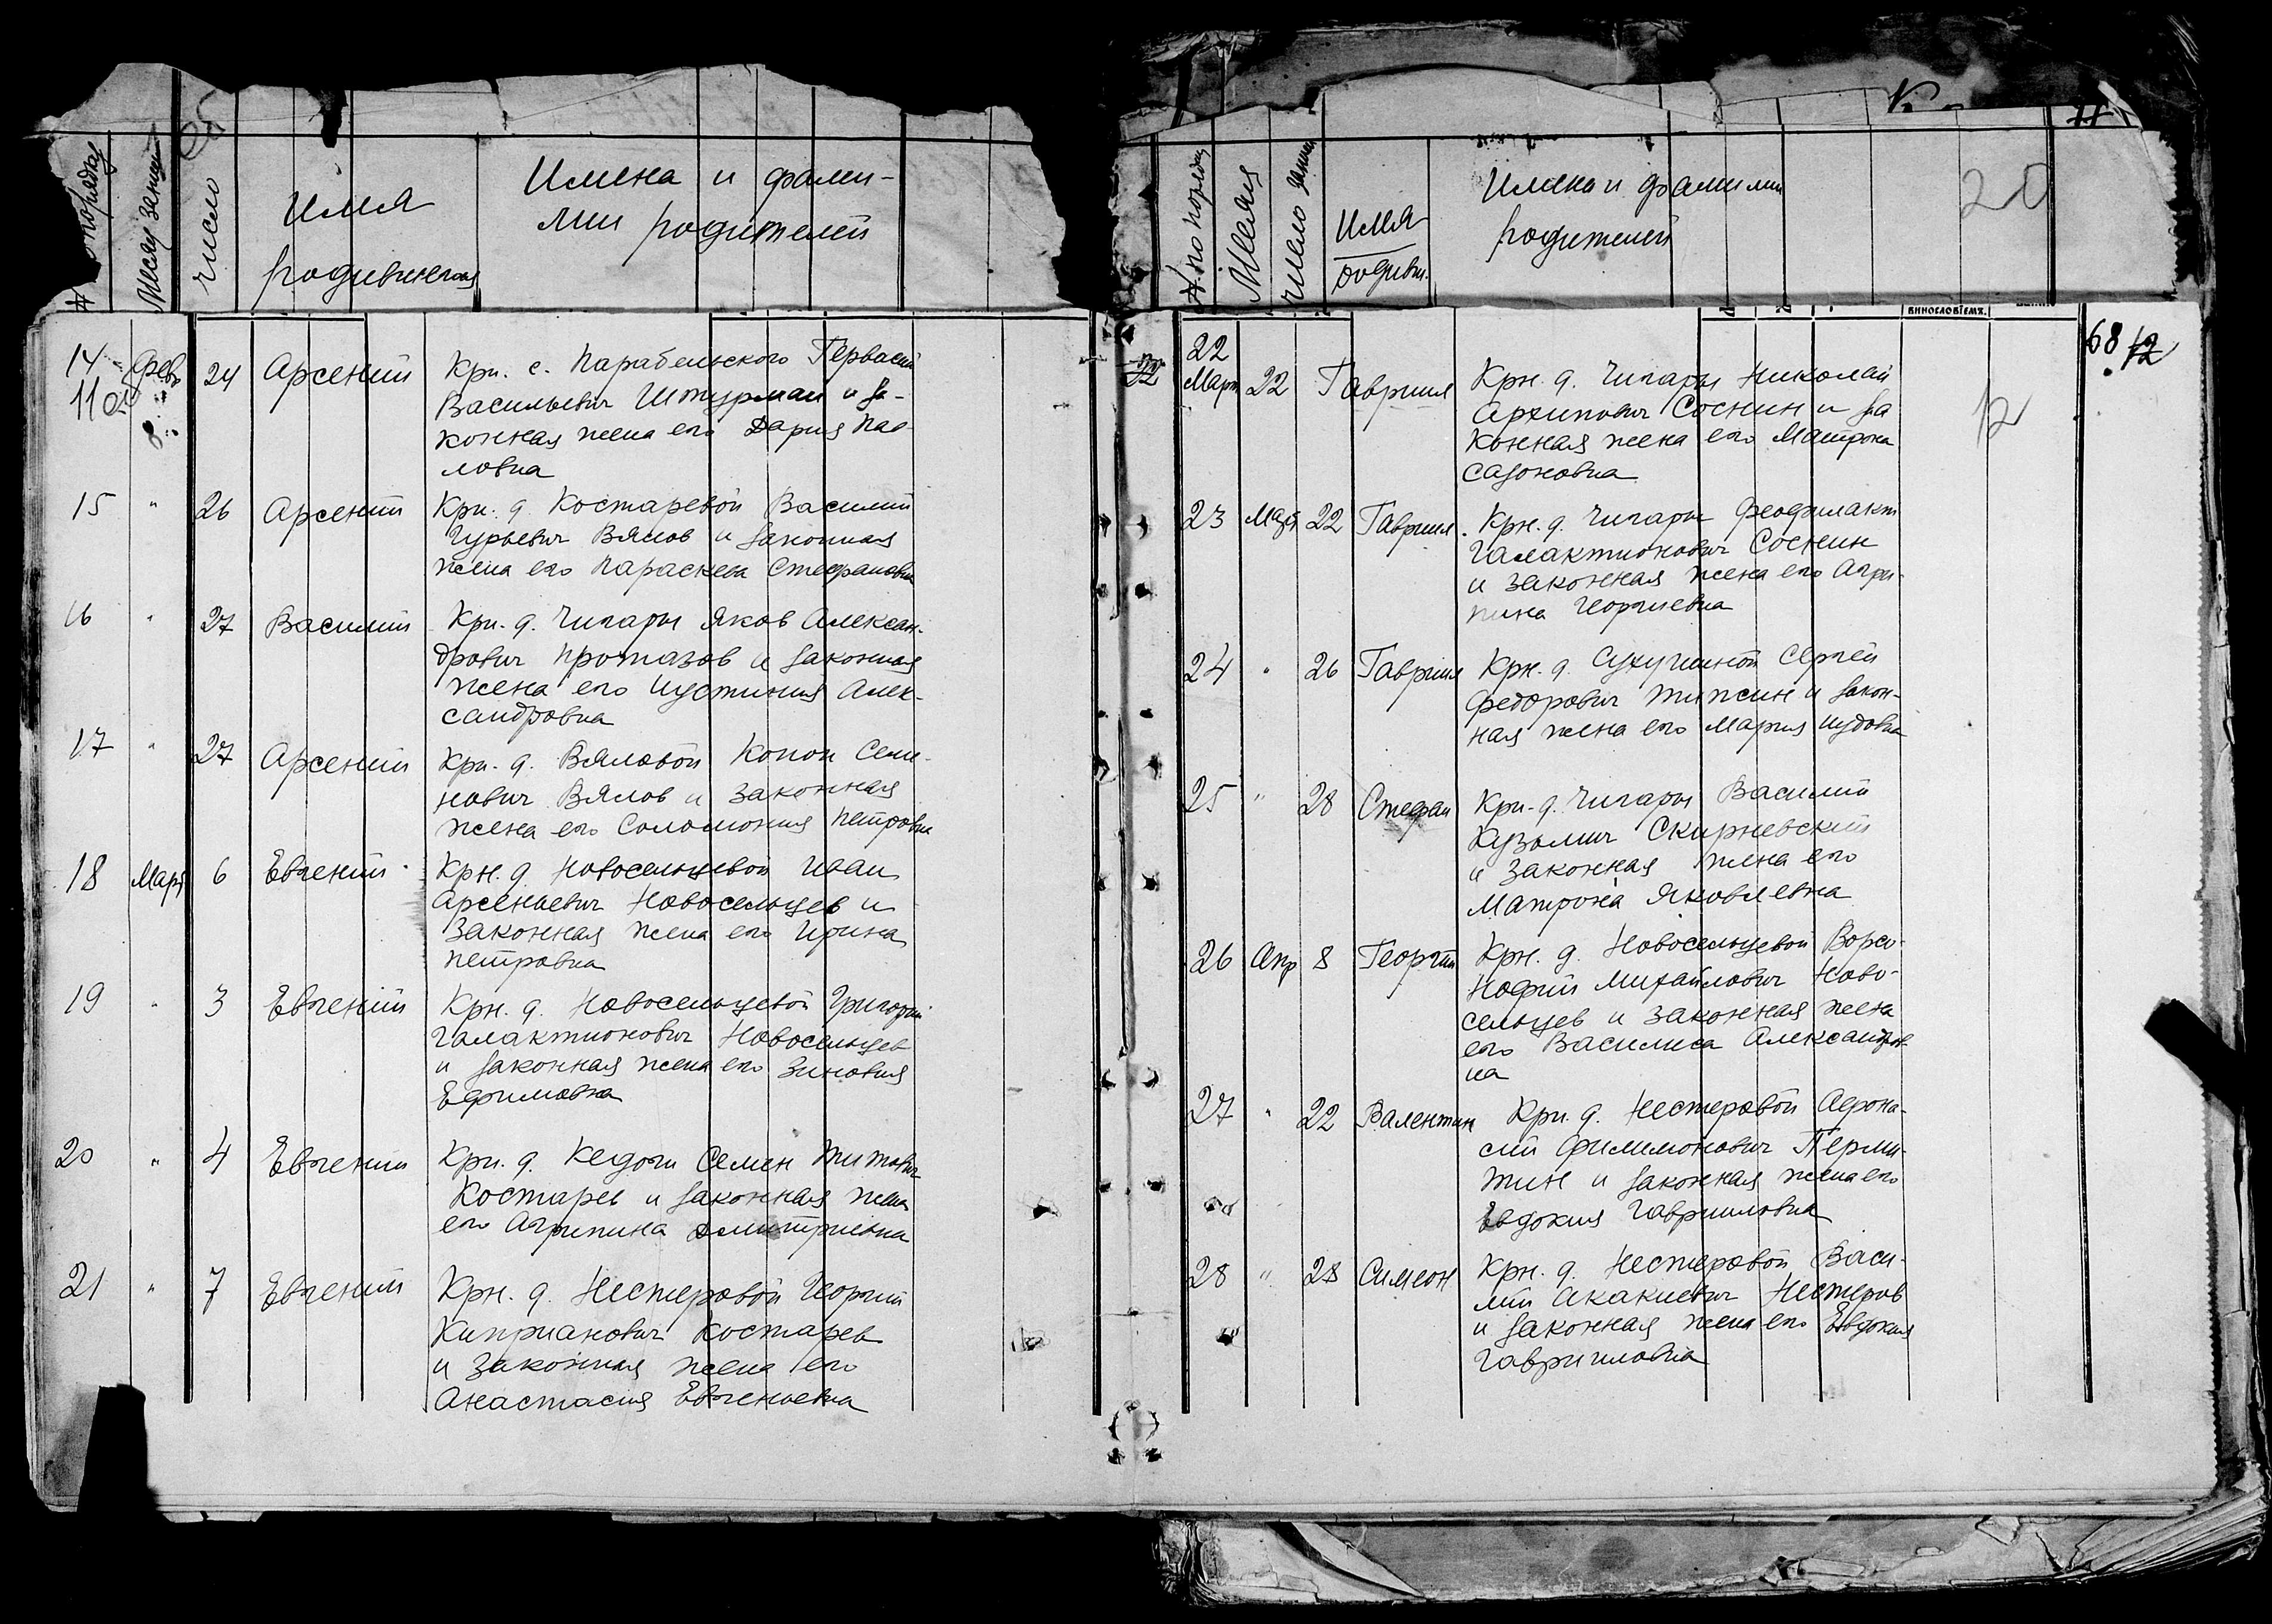 № по порядку
Месяц записи
число
Имя
родившегося
Имена и фами-
лии родителей
14 Февр 24 Арсений Крн. с. Парабельского Гервасий
Васильевич Штурман и за-
конная жена его Дария Пав-
ловна
15 " 26 Арсений Крн. д. Костаревой Василий
Гурьевич Вялов и законная
жена его Параскева Стефановна
16 " 27 Василий Крн. д. Чигары Яков Алексан-
дрович Протазов и законная
жена его Иустиния Алек-
сандровна
17 " 27 Арсений Крн. д. Вяловой Конон Семе-
нович Вялов и законная
жена его Соломония Петровна
18 Март 6 Евгений Крн. д. Новосельцевой Иван
Арсеньевич Новосельцев и
законная жена его Ирина
Петровна
19 " 3 Евгений Крн. д. Новосельцевой Григорий
Галактионович Новосельцев
и законная жена его Зиновия
Ефимовна
20 " 4 Евгений Крн. д. Семен Титович
Костарев и законная жена
его Агрипина Дмитриевна
21 " 7 Евгений Крн. д. Нестеровой Георгий
Киприанович Костарев
и законная жена его
Анастасия Евгеньевна
№ по порядку
Месяц
число записи
Имя
родивш.
Имена и фамилии
родителей
20
винословіемъ.
68 12
12
22 Март 22 Гавриил Крн. д. Чигары Николай
Архипович Соснин и за
конная жена его Матрона
Сазоновна
23 Март 22 Гавриил Крн. д. Чигары Феофилакт
Галактионович Соснин
и законная жена его Агри-
пина Георгиевна
24 " 26 Гавриил Крн. д. Сухушиной Сергей
Федорович Типсин и закон-
ная жена его Мария Иудовна
25 " 28 Стефан Крн. д. Чигары Василий
Кузьмич Скирневский
и законная жена его
Матрона Яковлевна
26 Апр 8 Георгий Крн. д. Новосельцевой Ворсо-
нофий Михайлович Ново-
сельцев и законная жена
его Василиса Александров
на
27 " 22 Валентин Крн. д. Нестеровой Афона-
сий Филимонович Перми-
тин и законная жена его
Евдокия Гаврииловна
28 " 28 Симеон Крн. д. Нестеровой Васи-
лий Акакиевич Нестеров
и законная жена его Евдокия
Гаврииловна